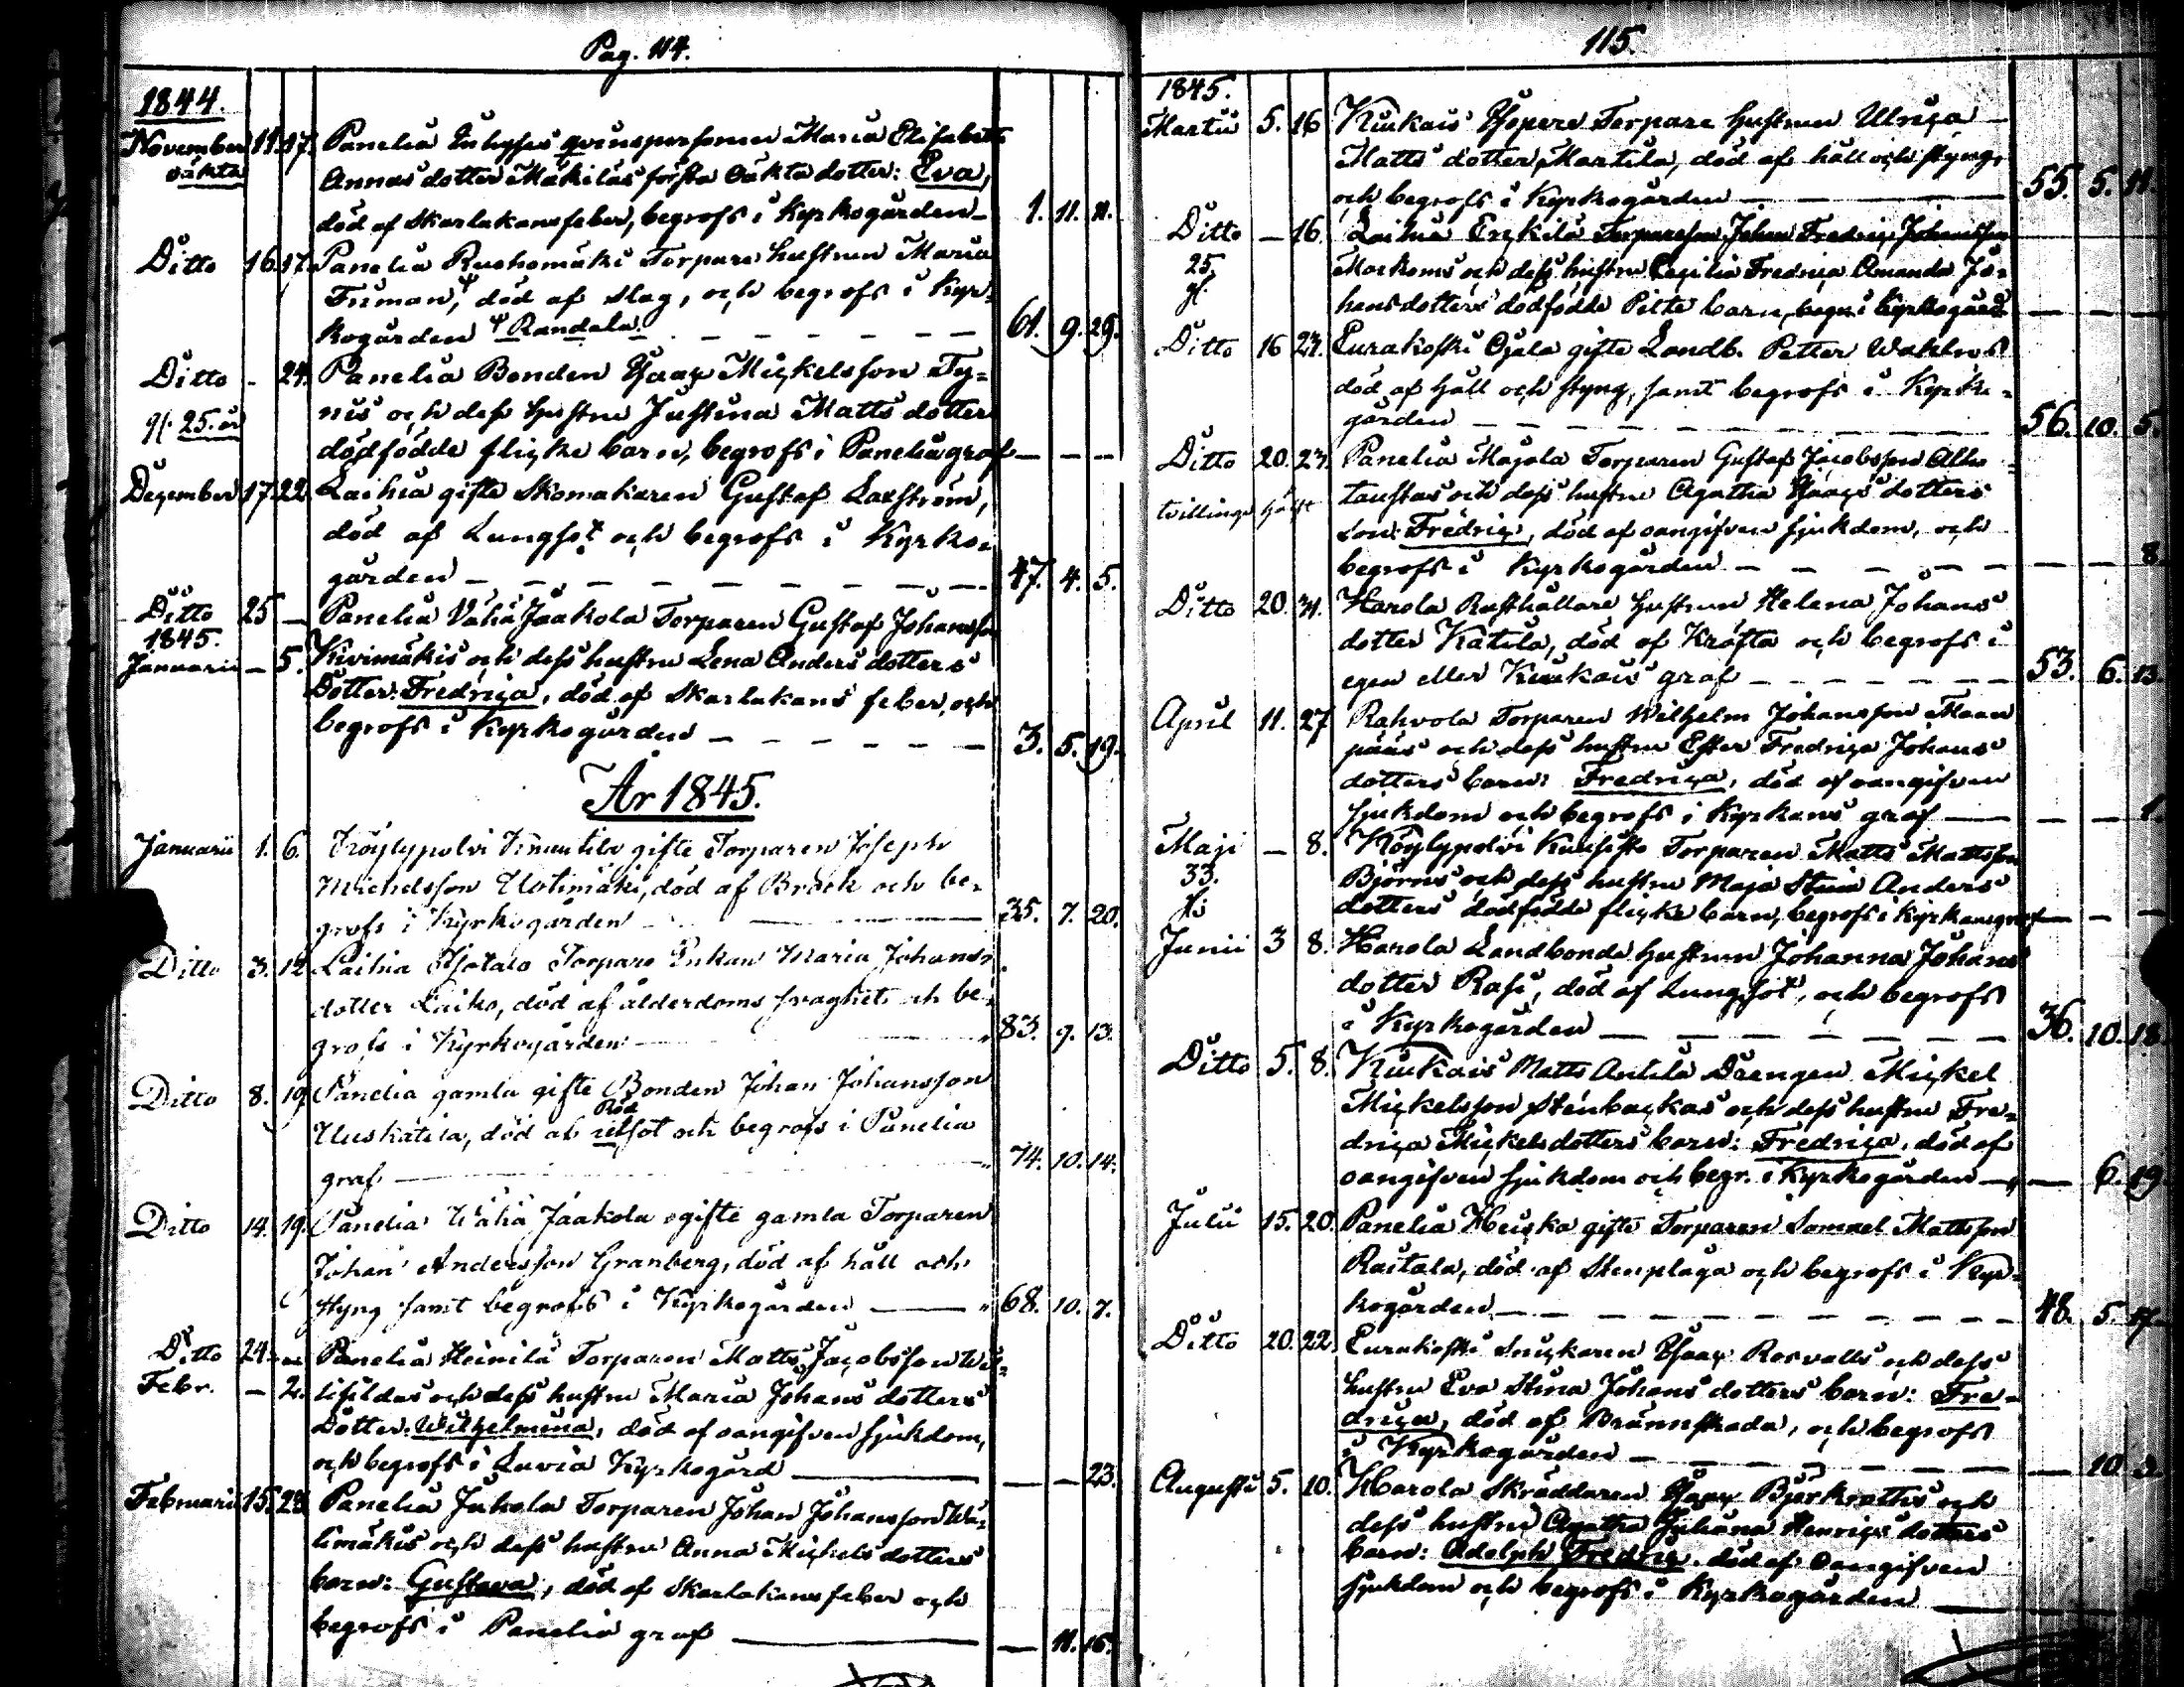 Pag. 114.
1844.
November 11. 17. Panelia Inhyses qvinspersonen Maria Elisabeth
oäkta Annas dotter Mäkiläs första Oäkta dotter: Eva,
död af Skarlakansfeber, begrofs i Kyrkogården 1. 11. 11.
Ditto 16. 17. Panelia Ruohomäki Torpare hustrun Maria
Friman, död af slag, och begrofs i Kyr-
kogården Randala. 61. 9. 29.
Ditto - 24. Panelia Bonden Isaac Mickelsson Ty-
nis och dess hustru Justina Matts dotters
gl. 25. år dödfödde flicke barn, begrofs i Panelia graf — — —
December 17. 22. Laihia gifte Skomakaren Gustaf Laxström,
död af Lungsot och begrofs i Kyrko-
gården 47. 4. 5.
Ditto 25 — Panelia Vähä Jaakola Torparen Gustaf Johansson
1845.
Januarii — 5. Kivimäkis och dess hustru Lena Anders dotters
Dotter: Fredrica, död af Skarlakans feber, och
begrofs i Kyrkogården 3. 5. 19.
År 1845.
Januarii 1. 6. Köylypolvi gifte Torparen Joseph
Michelsson Uotimäki, död af Bråck och be-
grofs i Kyrkogården 35. 7. 20.
Ditto 3. 12 Laihia Torpare Enkan Maria Johans
dotter Laiko, död af ålderdoms svaghet och be-
grofs i Kyrkogården 83. 9. 13.
Ditto 8. 19. Panelia gamla gifte Bonden Johan Johansson
Röd
Uuskatila, död af sot och begrofs i Panelia
graf 74. 10. 14.
Ditto 14. 19. Panelia Wähä Jaakola gifte gamla Torparen
Johan Andersson Granberg, död af håll och
styng samt begrofs i Kyrkogården 68. 10. 7.
Ditto 24. Panelia Heinilä Torparen Matts Jacobsson
Febr. — 2. och dess hustru Maria Johans dotters
Dotter: Wilhelmina, död af oangifven sjukdom,
och begrofs i Luvia Kyrkogård — — 23.
Februarii 15. 23. Panelia Jukola Torparen Johan Johansson Wä-
limäkis och dess hustru Anna Mickels dotters
barn: Gustava, död af Skarlakansfeber och
begrofs i Panelia graf — 11. 16.
115.
1845.
Martii 5. 16 Kiukais Torpare hustrun Ulrica
Matts dotter Martila, död af håll och styng,
och begrofs i Kyrkogården 55. 5. 11.
Ditto — 16. Laihia Erckilä Torparesson Johan Fredric Johansson
25. och dess hustru Cecilia Fredrica Amanda Jo-
gl. hansdotters dödfödde Pilte barn, begr. i Kyrkogård — — —
Ditto 16 24. Eurakoski Ojala gifte Landb. Petter
död af håll och styng, samt begrofs i Kyrko-
gården 56. 10. 5.
Ditto 20. 24. Panelia Majala Torparen Gustaf Jacobsson
tvillinge och dess hustru Agatha Isaacs dotters
son: Fredric, död af oangifven sjukdom, och
begrofs i Kyrkogården — — 8.
Ditto 20. 31. Harola Rusthållare hustrun Helena Johans
dotter Katila, död af Kräfta och begrofs i
egen eller Kiukais graf 53. 6. 13.
April 11. 27 Rahvola Torparen Wilhelm Johansson Maan
pääs och dess hustru Ester Fredrica Johans
dotters barn: Fredrica, död af oangifven
sjukdom och begrofs i Kyrkans graf — — 1.
Maji — 8. Köylypolvi Torparen Matts Mattsson
33. Björns och dess hustru Maja Stina Anders
dotters dödfödde flicke barn, begrofs i Kyrkansgraf — — —
Junii 3 8. Harola Landbonde hustrun Johanna Johans
dotter Rasi, död af Lungsot, och begrofs
i Kyrkogården 36. 10. 18.
Ditto 5. 8. Kiukais Matts Antila Drengen Mickel
Mickelsson Stenbackas och dess hustru Fre-
drica Mickelsdotters barn: Fredrica, död af
oangifven sjukdom och begr. i Kyrkogården — 6. 19
Julii 15. 20. Panelia Heiska gifte Torparen Samuel Mattsson
Raitala, död af Stenplåga och begrofs i Kyr-
kogården 48. 5. 17.
Ditto 20. 22. Eurakoski Snickaren Isaac Rosvalls och dess
hustru Eva Stina Johans dotters barn: Fre-
drica, död af Brännskada, och begrofs
i Kyrkogården — 10
Augusti 5. 10. Harola Skräddaren Isaac och
dess hustru Agatha Juliana Henrics dotters
barn: Adolph Fredric. död af oangifven
sjukdom och begrofs i Kyrkogården